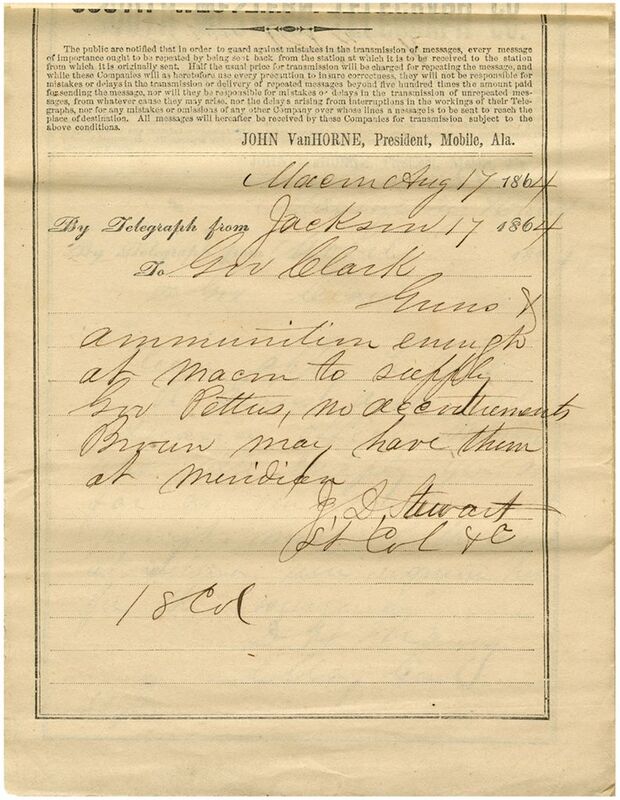 SOUTH-WESTERN TELEGRAPH CO
The public are notified that in order to guard against mistakes in the transmission of messages, every message
of importance ought to be repeated by being sent back from the station at which it is to be received to the station
from which it is originally sent. Half the usual price for transmission will be charged for repeating the message, and
while these Companies will as heretofore use every precaution to insure correctness, they will not be responsible for
mistakes or delays in the transmission or delivery of repeated messages beyond five hundred times the amount paid
for sending the message, nor will they be responsible for mistakes or delays in the transmission of unrepeated mes-
sages, from whatever cause they may arise, nor the delays arising from interruptions in the workings of their Tele-
graphs, nor for any mistakes or omissions of any other Company over whose lines a message is to be sent to reach the
place of destination. All messages will hereafter be received by these Companies for transmission subject to the
above conditions.
JOHN VanHORNE, President, Mobile, Ala.
Macon Aug 17 1864
By Telegraph from Jackson 17 1864
To Gov Clark
Guns &
ammunition enough
at Macon to supply
Gov Pettus, no accoutrements
Brown may have them
at Meridian
J. D. Stewart
Lt Col &c
18 Col